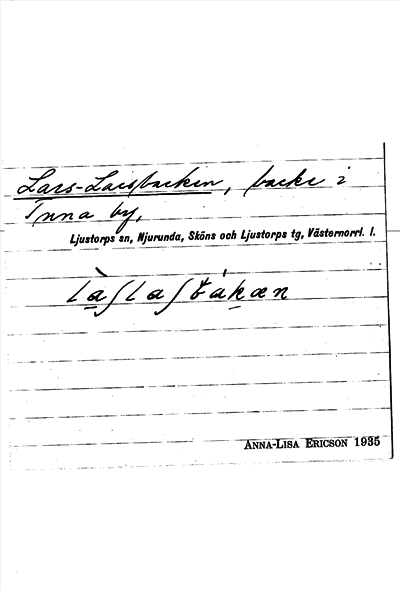 Lars-Larsbacken, backe i
Inna by,
Ljustorps sn, Njurunda, Sköns och Ljustorps tg, Västernorrl. l.
là̱ʃlaʃbáḵæn
ANNA-LISA ERICSON 1935